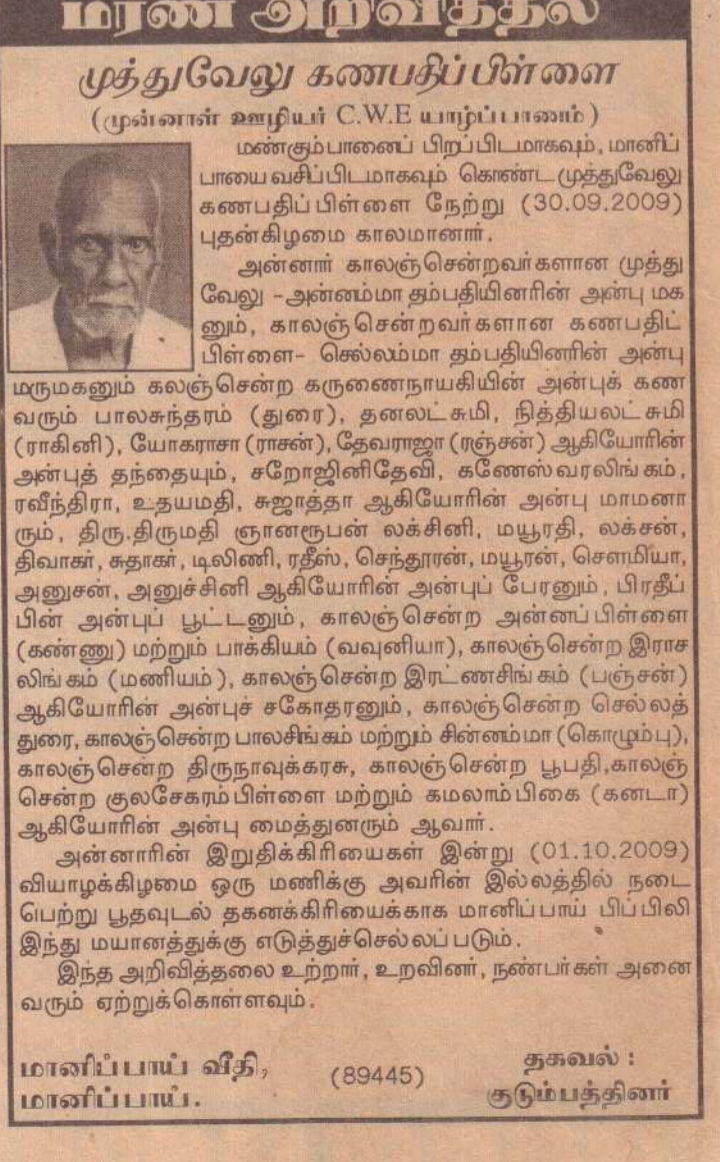 மரண அறிவித்தல்
முத்துவேலு கணபதிப்பிள்ளை
(முன்னாள் ஊழியர் C.W.E யாழ்ப்பாணம்)
மண்கும்பானைப் பிறப்பிடமாகவும், மானிப்
பாயை வசிப்பிடமாகவும் கொண்ட முத்துவேலு
கணபதிப்பிள்ளை நேற்று (30.09.2009)
புதன்கிழமை காலமானார்.
அன்னார் காலஞ்சென்றவர்களான முத்து
வேலு -அன்னம்மா தம்பதியினரின் அன்பு மக
னும், காலஞ்சென்றவர்களான கணபதிட்
பிள்ளை- செல்லம்மா தம்பதியினரின் அன்பு
மருமகனும் கலஞ்சென்ற கருணைநாயகியின் அன்புக் கண
வரும் பாலசுந்தரம் (துரை), தனலட்சுமி, நித்தியலட்சுமி
(ராகினி), யோகராசா (ராசன்), தேவராஜா (ரஞ்சன்) ஆகியோரின்
அன்புத் தந்தையும், சறோஜினிதேவி, கணேஸ்வரலிங்கம்,
ரவீந்திரா, உதயமதி, சுஜாத்தா ஆகியோரின் அன்பு மாமனா
ரும், திரு.திருமதி ஞானரூபன் லக்சினி, மயூரதி, லக்சன்,
திவாகர், சுதாகர், டிலிணி, ரதீஸ், செந்தூரன், மயூரன், சௌமியா,
அனுசன், அனுச்சினி ஆகியோரின் அன்புப் பேரனும், பிரதீப்
பின் அன்புப் பூட்டனும், காலஞ்சென்ற அன்னப்பிள்ளை
(கண்ணு) மற்றும் பாக்கியம் (வவுனியா), காலஞ்சென்ற இராச
லிங்கம் (மணியம்), காலஞ்சென்ற இரட்ணசிங்கம் (பஞ்சன்)
ஆகியோரின் அன்புச் சகோதரனும், காலஞ்சென்ற செல்லத்
துரை, காலஞ்சென்ற பாலசிங்கம் மற்றும் சின்னம்மா (கொழும்பு),
காலஞ்சென்ற திருநாவுக்கரசு, காலஞ்சென்ற பூபதி,காலஞ்
சென்ற குலசேகரம்பிள்ளை மற்றும் கமலாம்பிகை (கனடா)
ஆகியோரின் அன்பு மைத்துனரும் ஆவார்.
அன்னாரின் இறுதிக்கிரியைகள் இன்று (01.10.2009)
வியாழக்கிழமை ஒரு மணிக்கு அவரின் இல்லத்தில் நடை
பெற்று பூதவுடல் தகனக்கிரியைக்காக மானிப்பாய் பிப்பிலி
இந்து மயானத்துக்கு எடுத்துச்செல்லப்படும்.
இந்த அறிவித்தலை உற்றார், உறவினர், நண்பர்கள் அனை
வரும் ஏற்றுக்கொள்ளவும்.
மானிப்பாய் வீதி,
மானிப்பாய்.
(89445)
தகவல் :
குடும்பத்தினர்